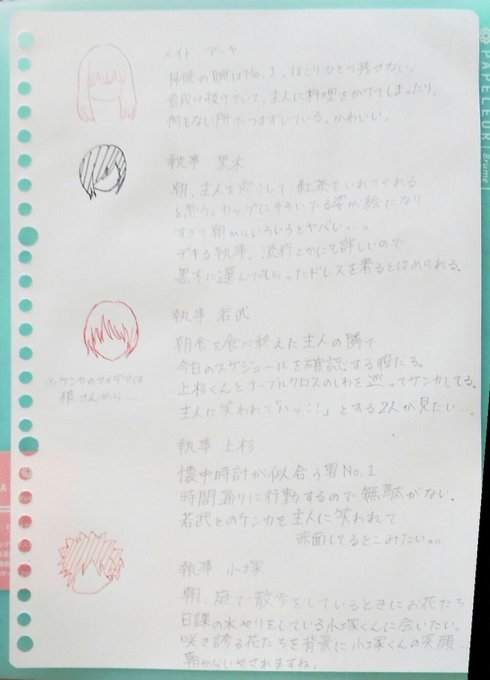 メイド アーヤ
掃除の腕はNo.1。ほこりひとつ残さない。
普段は抜けていて、主人に料理をかけてしまったり、
何もない所でつまずいている。かわいい。
執事 黒木
朝、主人を起こして、紅茶をいれてくれる
と思う。カップにそそいでいる姿が絵になり
すぎて朝からいろいろとヤバい…。
デキる執事。流行とかにも詳しいので
黒木に選んでもらったドレスを着るとほめられる。
執事 若武
朝食を食べ終えた主人の隣で
今日のスケジュールを確認する役だろ。
※ケンカのアイデアは
様さんから…
上杉くんとテーブルクロスのしわを巡ってケンカしてる。
主人に笑われて「ハッ…!」とする2人が見たい…。
執事 上杉
懐中時計が似合う男No.1
時間通りに行動するので無駄がない。
若武とのケンカを主人に笑われて
赤面してるとこみたい。。
執事 小塚
朝、庭で散歩をしているときにお花たち
日課の水やりをしている小塚くんに会いたい。
咲き誇る花たちを背景に小塚くんの笑顔…
朝からいやされますね。
PAPELEUR Brume